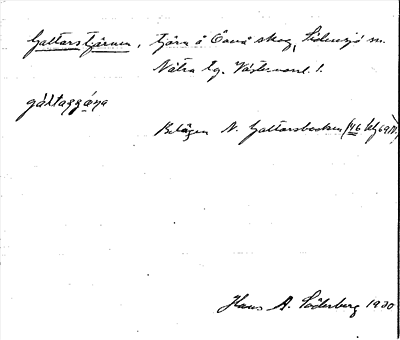 Gattarstjärnen, tjärn å Önvå skog, Sidensjö sn.
Nätra tg. Västernorrl. l.
gáttaʒʒána
Belägen N. Gattarsbacken (46
Hans A. Söderberg 1930